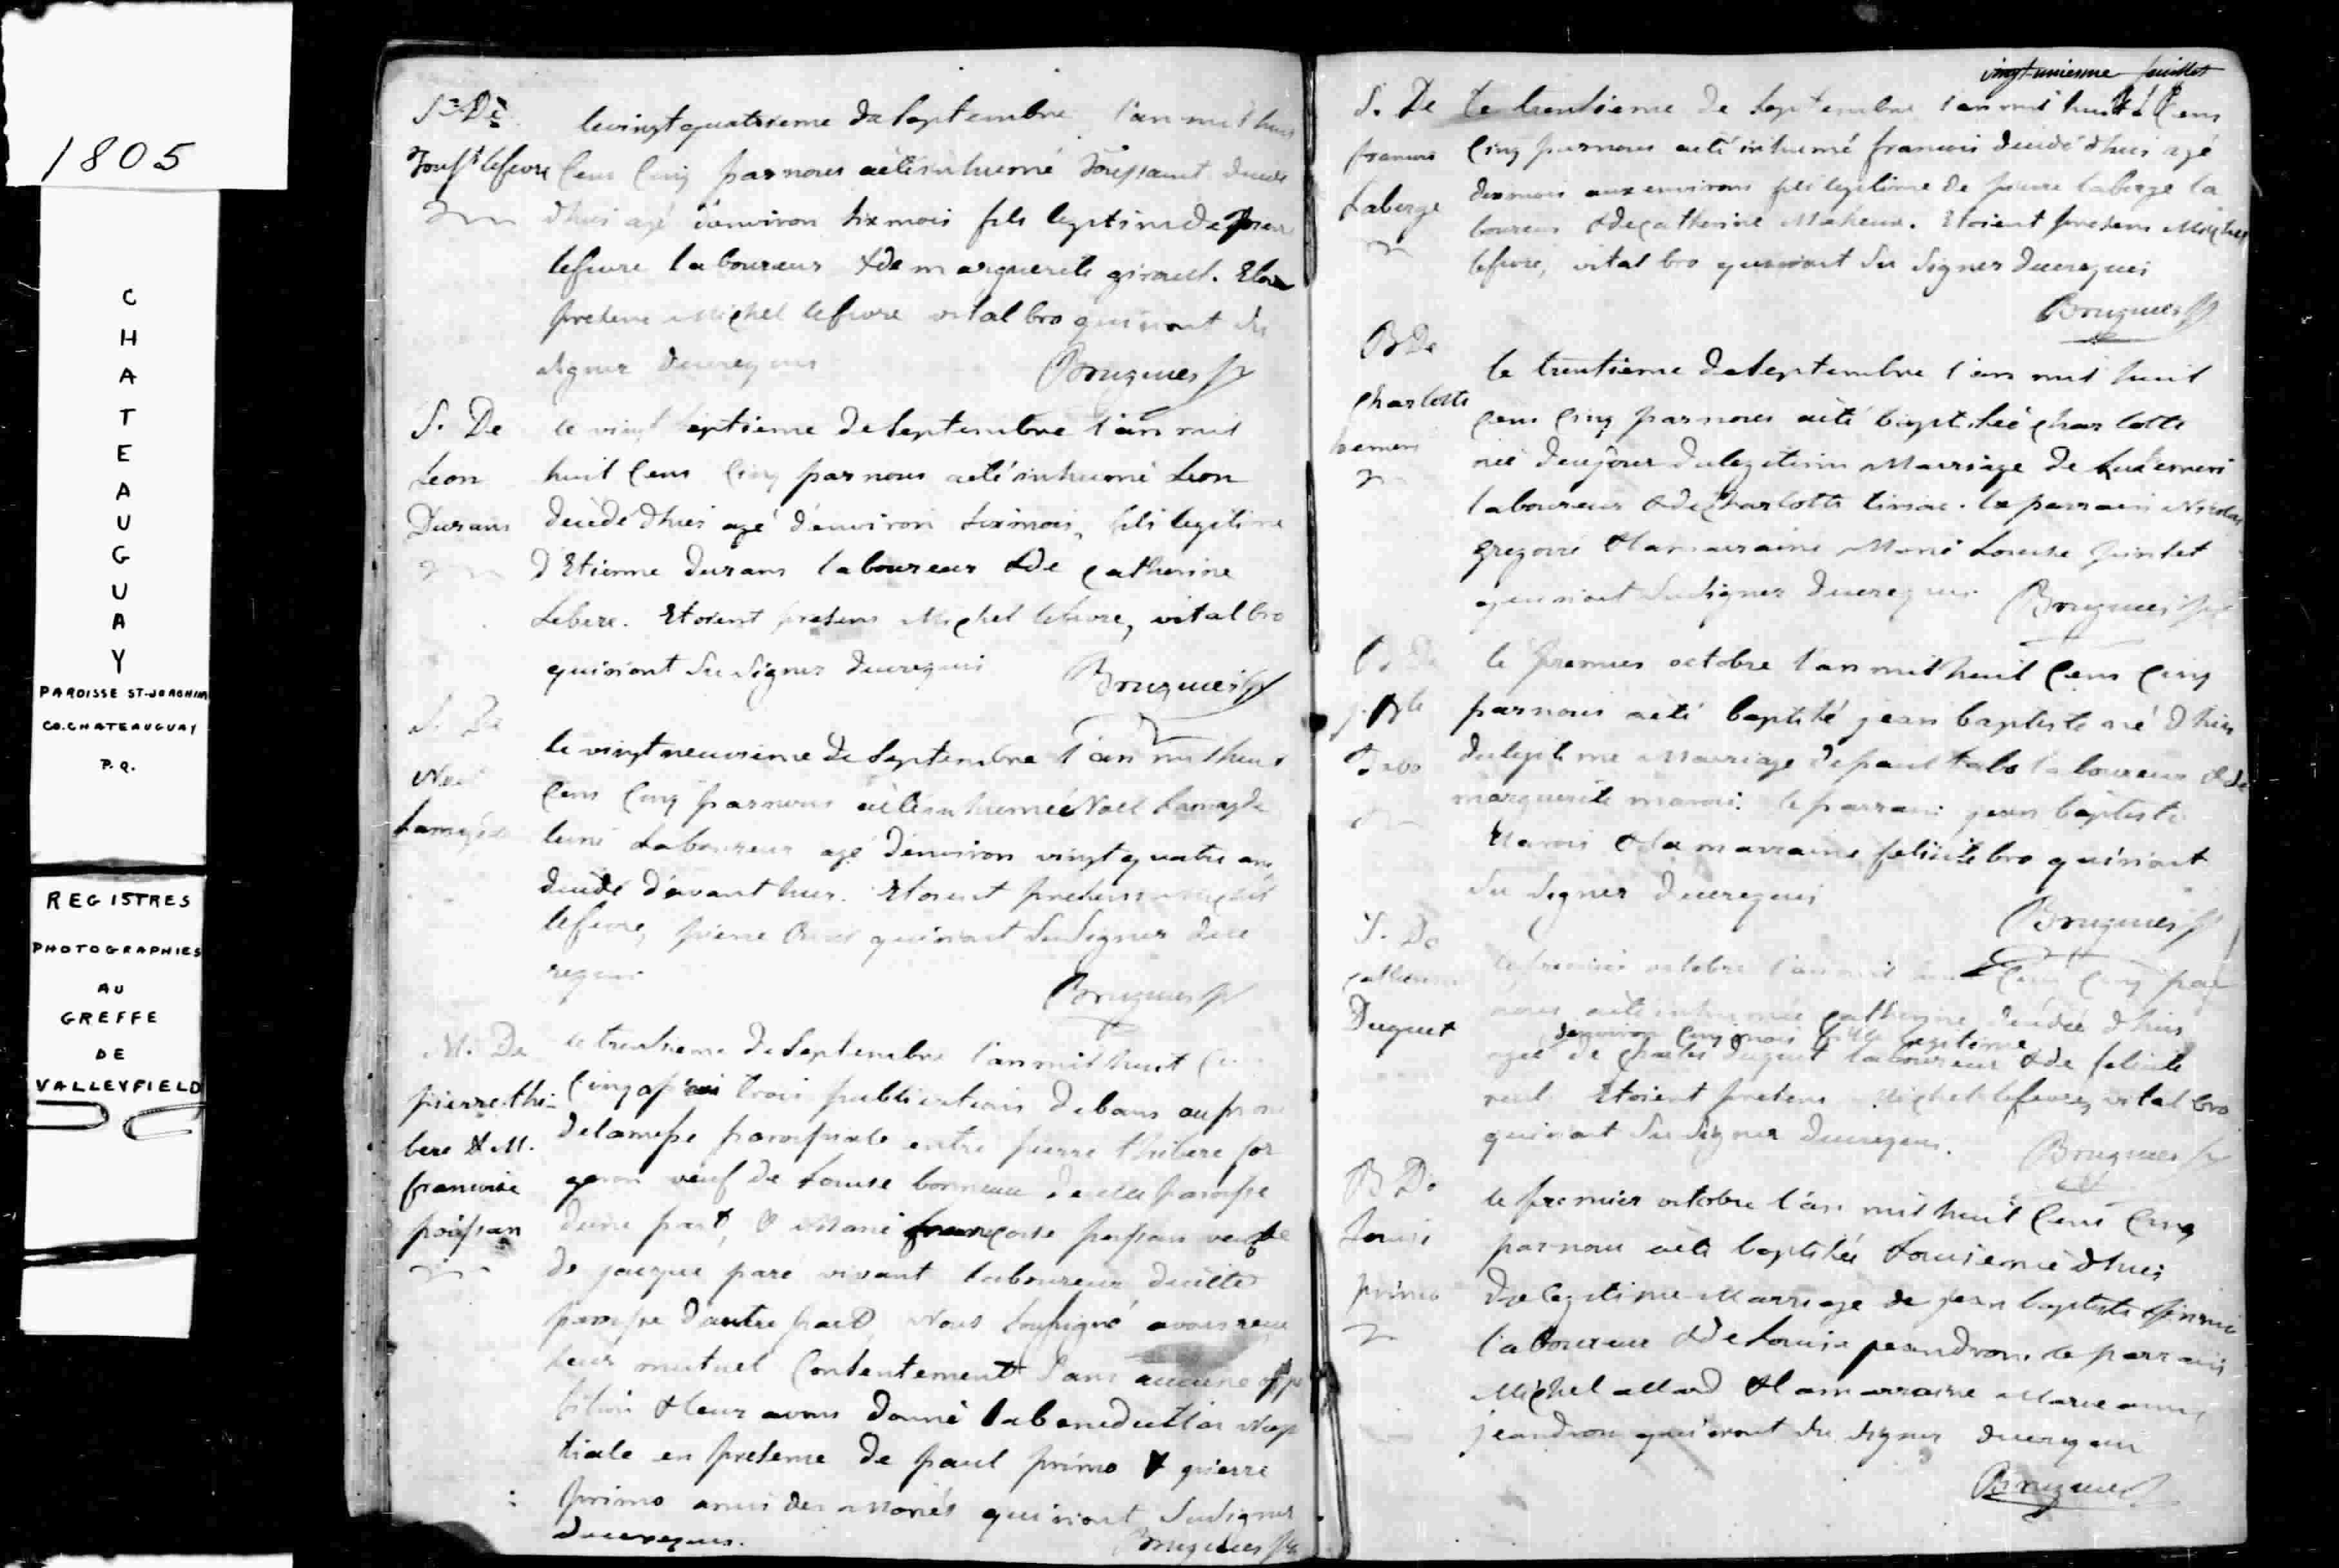 1805
CHATEAUGUAY
PAROISSE ST-JOACHIM
CO. CHATEAUGUAY
P.Q.
REGISTRES
PHOTOGRAPHIES
AU
GREFFE
DE
VALLEYFIELD
S. De
Touss lefevre
le vingt quatrieme de Septembre l'an mil huit
Cens Cinq par nous a été inhumé Toussaint décédé
d'hier agé d'environ six mois fils legitime de
lefevre laboureur & de marguerite giroust.
presens Michel lefevre vital bro qui n'ont su
signer de ce requis
Brugues ptr
S. De
Leon
Durans
le vingt septieme de Septembre l'an mil
huit Cens Cinq par nous a été inhumé Leon
décédé d'hier agé d'environ six mois, fils legitime
d'Etienne durans laboureur & de Catherine
Lebere. Etoient presens Michel lefevre, vital bro
qui n'ont su signer de ce requis
Brugues ptr
S. De
Noel
le vingt neuvieme de Septembre l'an mil huit
Cens Cinq par nous a été inhumé Noel
Laboureur agé d'environ vingt quatre ans
décédé d'avant hier. Etoient presens Michel
lefevre, pierre qui n'ont su signer de ce
requis
Brugues ptr
M. De
pierre thi-
bere & M.
francoise
poissan
le trentieme de Septembre l'an mil huit
Cinq après trois publications de bans au prone
de la messe paroissiale entre pierre thibere for
geron veuf de Louise bonneau de cette paroisse
d'une part, & Marie françoise poissan veuve
de jacque paré vivant laboureur de cette
paroisse d'autre part, Nous soussigné avons reçu
leur mutuel Consentement Sans aucune oppo
sition & leur avons donné la benediction Nup
tiale en presence de paul primo & pierre
primo amis des Mariés qui n'ont su signer
de ce requis.
Brugues ptr
vingt unieme feuillet
S. De
francois
Laberge
le trentieme de Septembre l'an mil huit Cens
Cinq par nous a été inhumé francois décédé d'hier agé
dix mois aux environs fils legitime de pierre laberge la
boureur & de catherine Maheux. Etoient presens Michel
lefevre, vital bro qui n'ont su signer de ce requis
Brugues ptr
B De
Charlotte
le trentieme de Septembre l'an mil huit
Cens Cinq par nous a été baptisée Charlotte
née de ce jour du legitime Mariage de
laboureur & de Charlotte le parrain Nicolas
gregoire & la marraine Marie Louise
qui n'ont su signer de ce requis
Brugues ptr
B De
j. Bte
Tabo
le premier octobre l'an mil huit Cens Cinq
par nous a été baptisé jean baptiste né d'hier
du legitime Mariage de paul tabo laboureur & de
marguerite marois. le parrain jean baptiste
Marois & la marraine felicité bro qui n'ont
su signer de ce requis
Brugues ptr
S. De
Catherine
Duquet
le premier octobre l'an mil huit Cens Cinq par
nous a été inhumée catherine décédée d'hier
d'environ Cinq mois fille legitime
agée de Charles duquet laboureur & de felicité
Etoient presens Michel lefevre, vital bro
qui n'ont su signer de ce requis.
Brugues ptr
B De
Louise
primo
le premier octobre l'an mil huit Cens Cinq
par nous a été baptisée Louise née d'hier
du legitime Mariage de jean baptiste primo
laboureur & de Louise jeandron. le parrain
Michel allard & la marraine Marie anne
jeandron qui n'ont su signer de ce requis
Brugues